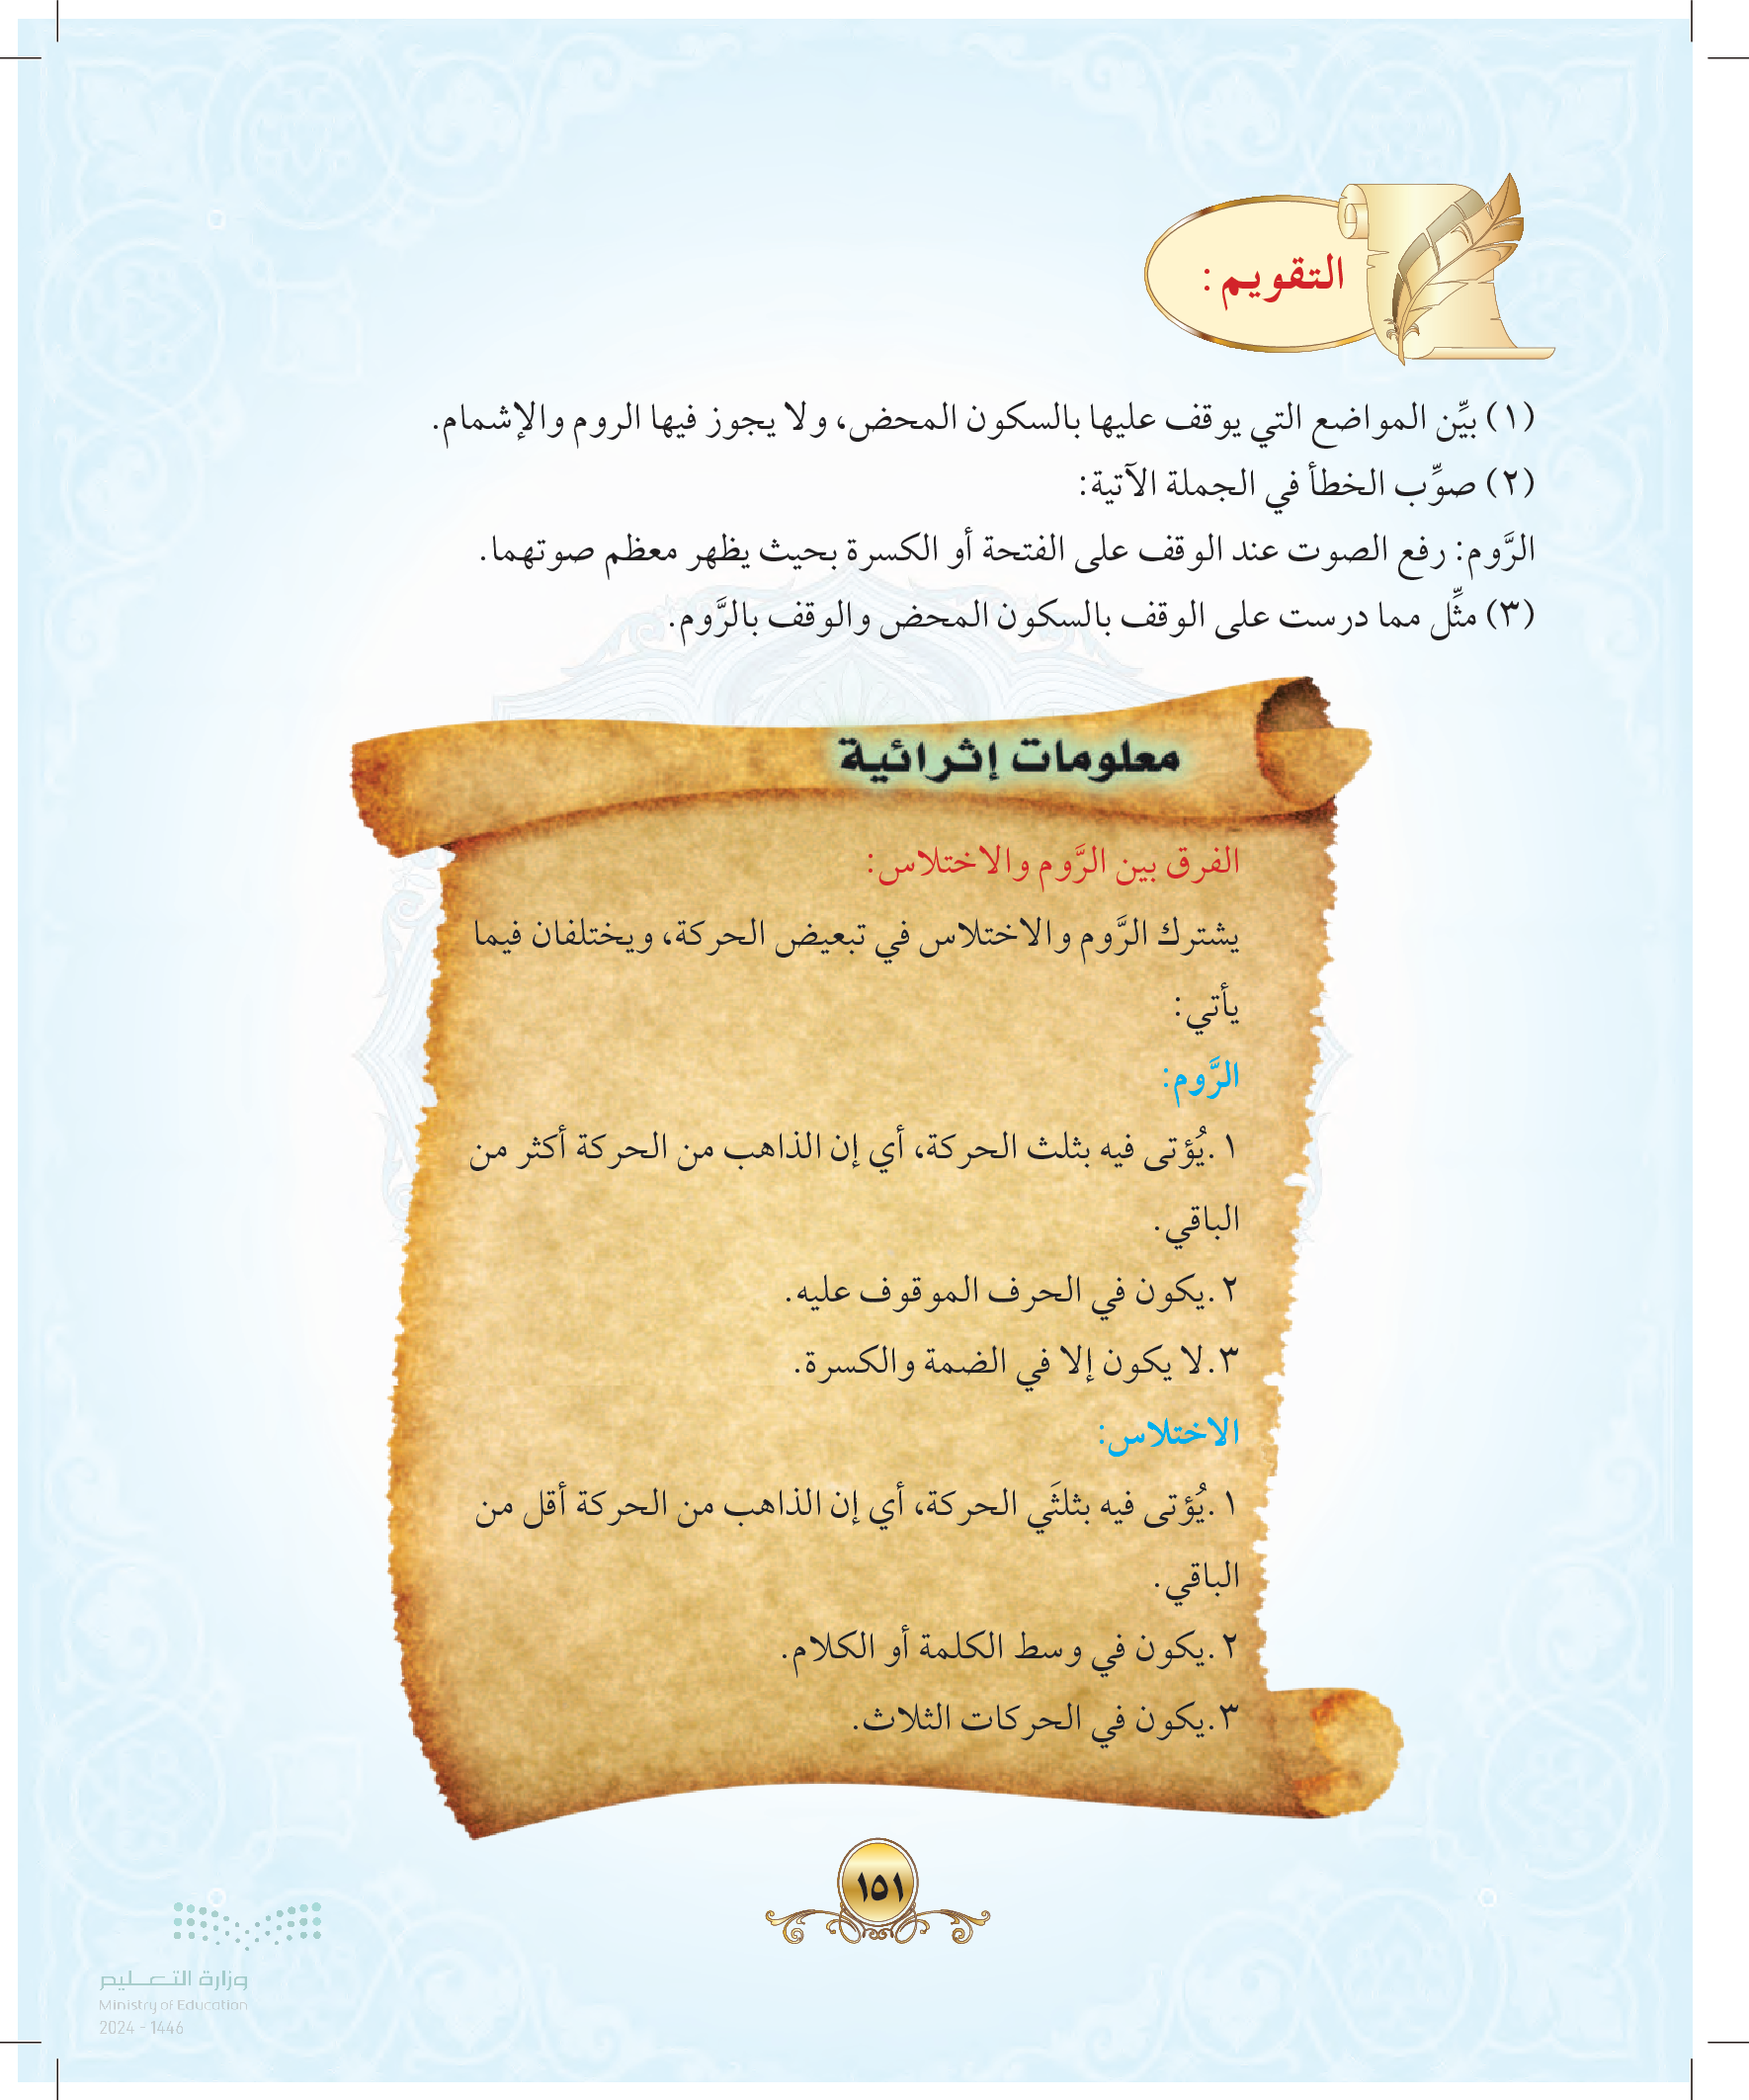 التقويم :
(١) بيِّن المواضع التي يوقف عليها بالسكون المحض، ولا يجوز فيها الروم والإشمام.
(٢) صوِّب الخطأ في الجملة الآتية:
الرَّوم: رفع الصوت عند الوقف على الفتحة أو الكسرة بحيث يظهر معظم صوتهما.
(٣) مثِّل مما درست على الوقف بالسكون المحض والوقف بالرَّوم.
معلومات إثرائية
الفرق بين الرَّوم والاختلاس:
يشترك الرَّوم والاختلاس في تبعيض الحركة، ويختلفان فيما
يأتي:
الرَّوم:
١.يُؤتى فيه بثلث الحركة، أي إن الذاهب من الحركة أكثر من
الباقي.
٢.يكون في الحرف الموقوف عليه.
٣.لا يكون إلا في الضمة والكسرة.
الاختلاس:
١.يُؤتى فيه بثلثَي الحركة، أي إن الذاهب من الحركة أقل من
الباقي.
٢.يكون في وسط الكلمة أو الكلام.
٣.يكون في الحركات الثلاث.
١٥١
وزارة التعـــليم
Ministry of Education
2024 - 1446